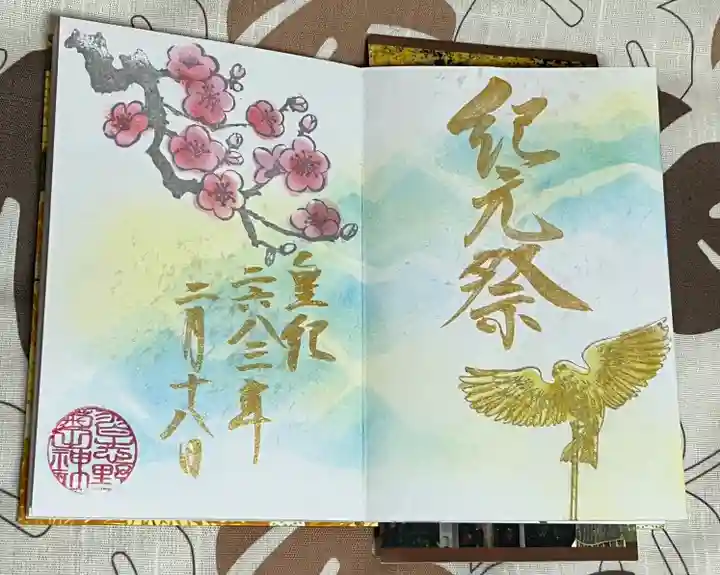 紀元祭
皇紀
二六八三年
二月十八日